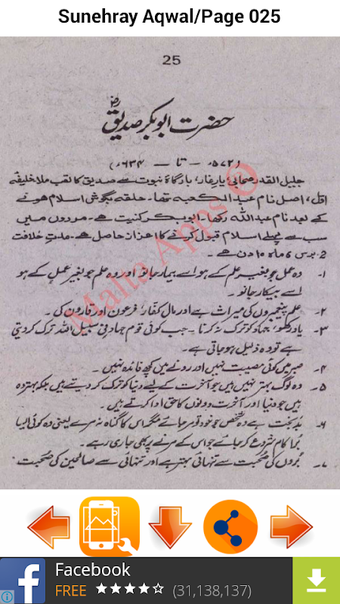 Sunehray Aqwal/Page 025
25
حضرت ابوبکر صدیقؓ
(۵۷۲ء — تا — ۶۳۴ء)
جلیل القدر صحابی، یارِ غار، بارگاہ نبوت سے صدیق کا لقب ملا خلیفہ
اوّل، اصل نام عبد الکعبہ تھا۔ حلقہ بگوش اسلام ہونے
کے بعد نام عبداللہ رکھا۔ ابوبکر کنیت ہے۔ مردوں میں
سب سے پہلے اسلام قبول کرنے کا اعزاز حاصل ہے۔ مدتِ خلافت
2 برس ۶ ماہ ۱۰ دن ہے۔
۱۔ وہ عمل جو بغیر علم کے ہو اسے بیمار جانو اور وہ علم جو بغیر عمل کے ہو
اسے بیکار جانو۔
۲۔ علم پیغمبروں کی میراث ہے اور مال کفّار، فرعون اور قارون کی۔
۳۔ یاد رکھو، جہاد کو ترک نہ کرنا۔ جب کوئی قوم جہاد فی سبیل اللہ ترک کر دیتی
ہے تو وہ ذلیل ہو جاتی ہے۔
۴۔ صبر میں کوئی مصیبت نہیں اور رونے میں کچھ فائدہ نہیں۔
۵۔ وہ لوگ بہتر نہیں ہیں جو آخرت کے لیے دنیا کو ترک کر دیتے ہیں بلکہ بہتر وہ
ہیں جو دنیا اور آخرت دونوں کا حق ادا کرتے ہیں۔
۶۔ بدبخت ہے وہ شخص جو خود تو مر جائے مگر اس کا گناہ نہ مرے یعنی وہ کوئی ایسا
بُرا کام شروع کر جائے جو اس کے مرنے پر بھی جاری رہے۔
۷۔ بُروں کی صحبت سے تنہائی بہتر ہے اور تنہائی سے صالحین کی صحبت
Malta Apps ®
Facebook
FREE ★★★★☆ (31,138,137)